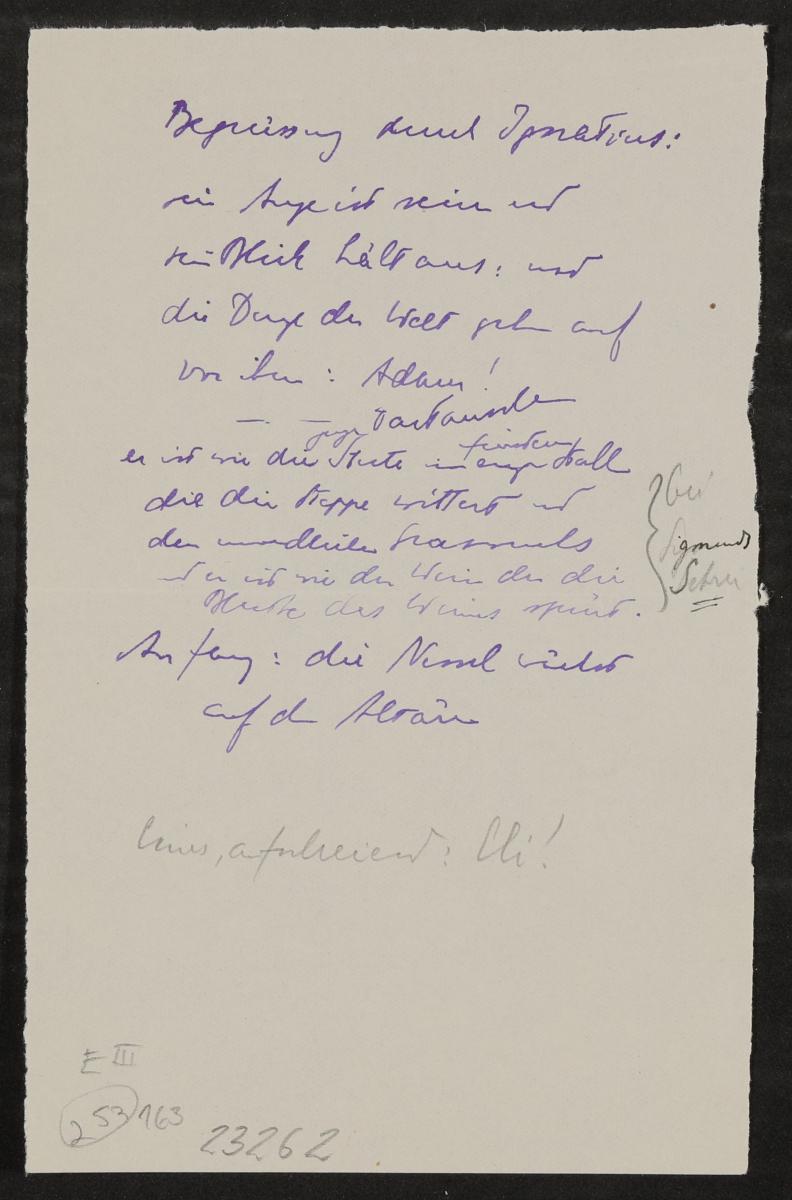 Begrüssung durch Ignatius:
sein Auge ist rein und
sein Blick hält aus: und
die Dinge der Welt gehn auf
vor ihm: Adam!
— —
junge
er ist wie die Stute im engen Stall
finstern
die die Steppe wittert und
den unendlichen
und er ist wie der Wein der die
des Weines spürt.
bei
Sigmunds
Schrei
Anfang: die Nessel wächst
auf den Altären
Eines, aufschreiend: Eli!
E III
253
163
23262